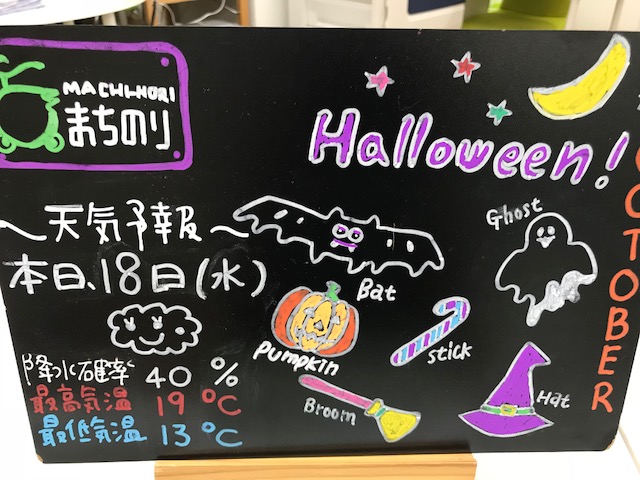 MACHI-NORI
まちのり
Halloween!
～天気予報～
本日、18日(水)
降水確率 40 %
最高気温 19℃
最低気温 13℃
Bat
Ghost
Pumpkin
stick
Broom
Hat
OCTOBER